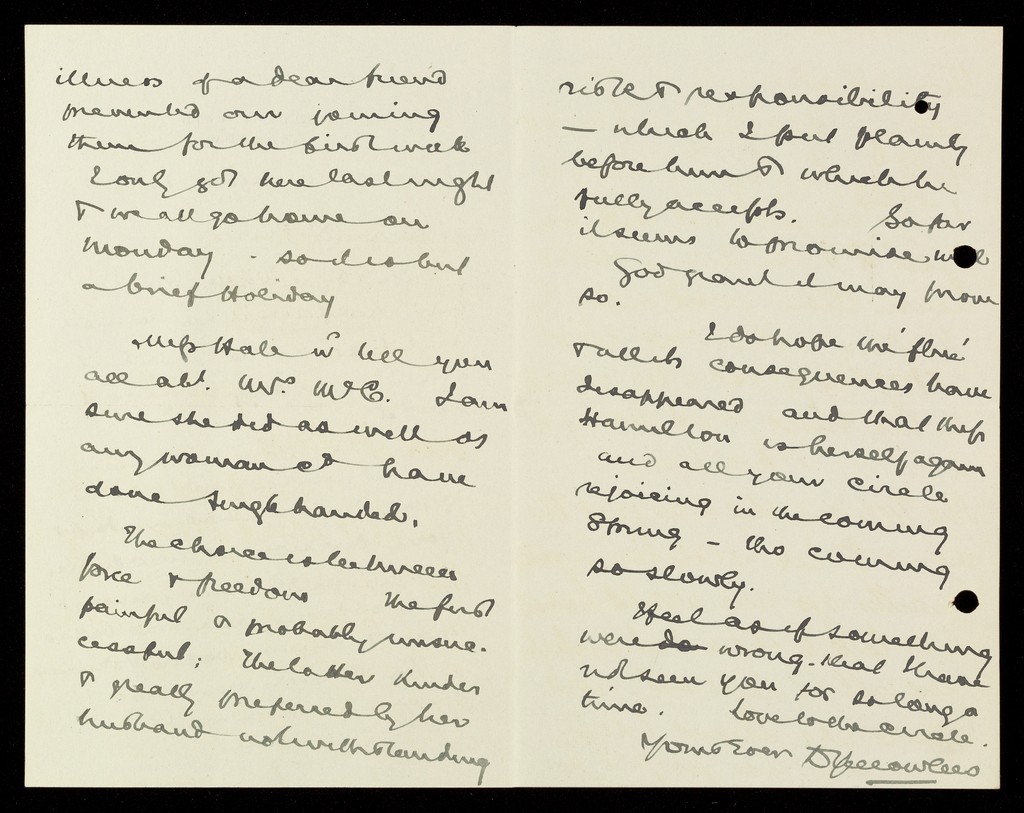 illness of a dear friend
prevented our joining
them for the first week
I only got here last night
& we all go home on
Monday - so it is but
a brief Holiday
Miss Hale wd tell you
all abt. Mrs. McC. I am
sure she did as well as
any woman cd have
done single handed.
The choice is between
force & freedom the first
painful & probably unsuc-
cessful; The latter kinder
& greatly preferred by her
husband notwithstanding
risk & responsibility
— which I put plainly
before him & which he
fully accepts. So far
it seems to promise well
God grant it may prove
so.
I do hope the 'flue'
& all its consequences have
disappeared and that Miss
Hamilton is herself again
and all your circle
rejoicing in the coming
Spring - tho coming
so slowly.
I feel as if something
were do wrong - that I have
not seen you for so long a
time. Love to the circle.
Yours Ever D Yellowlees